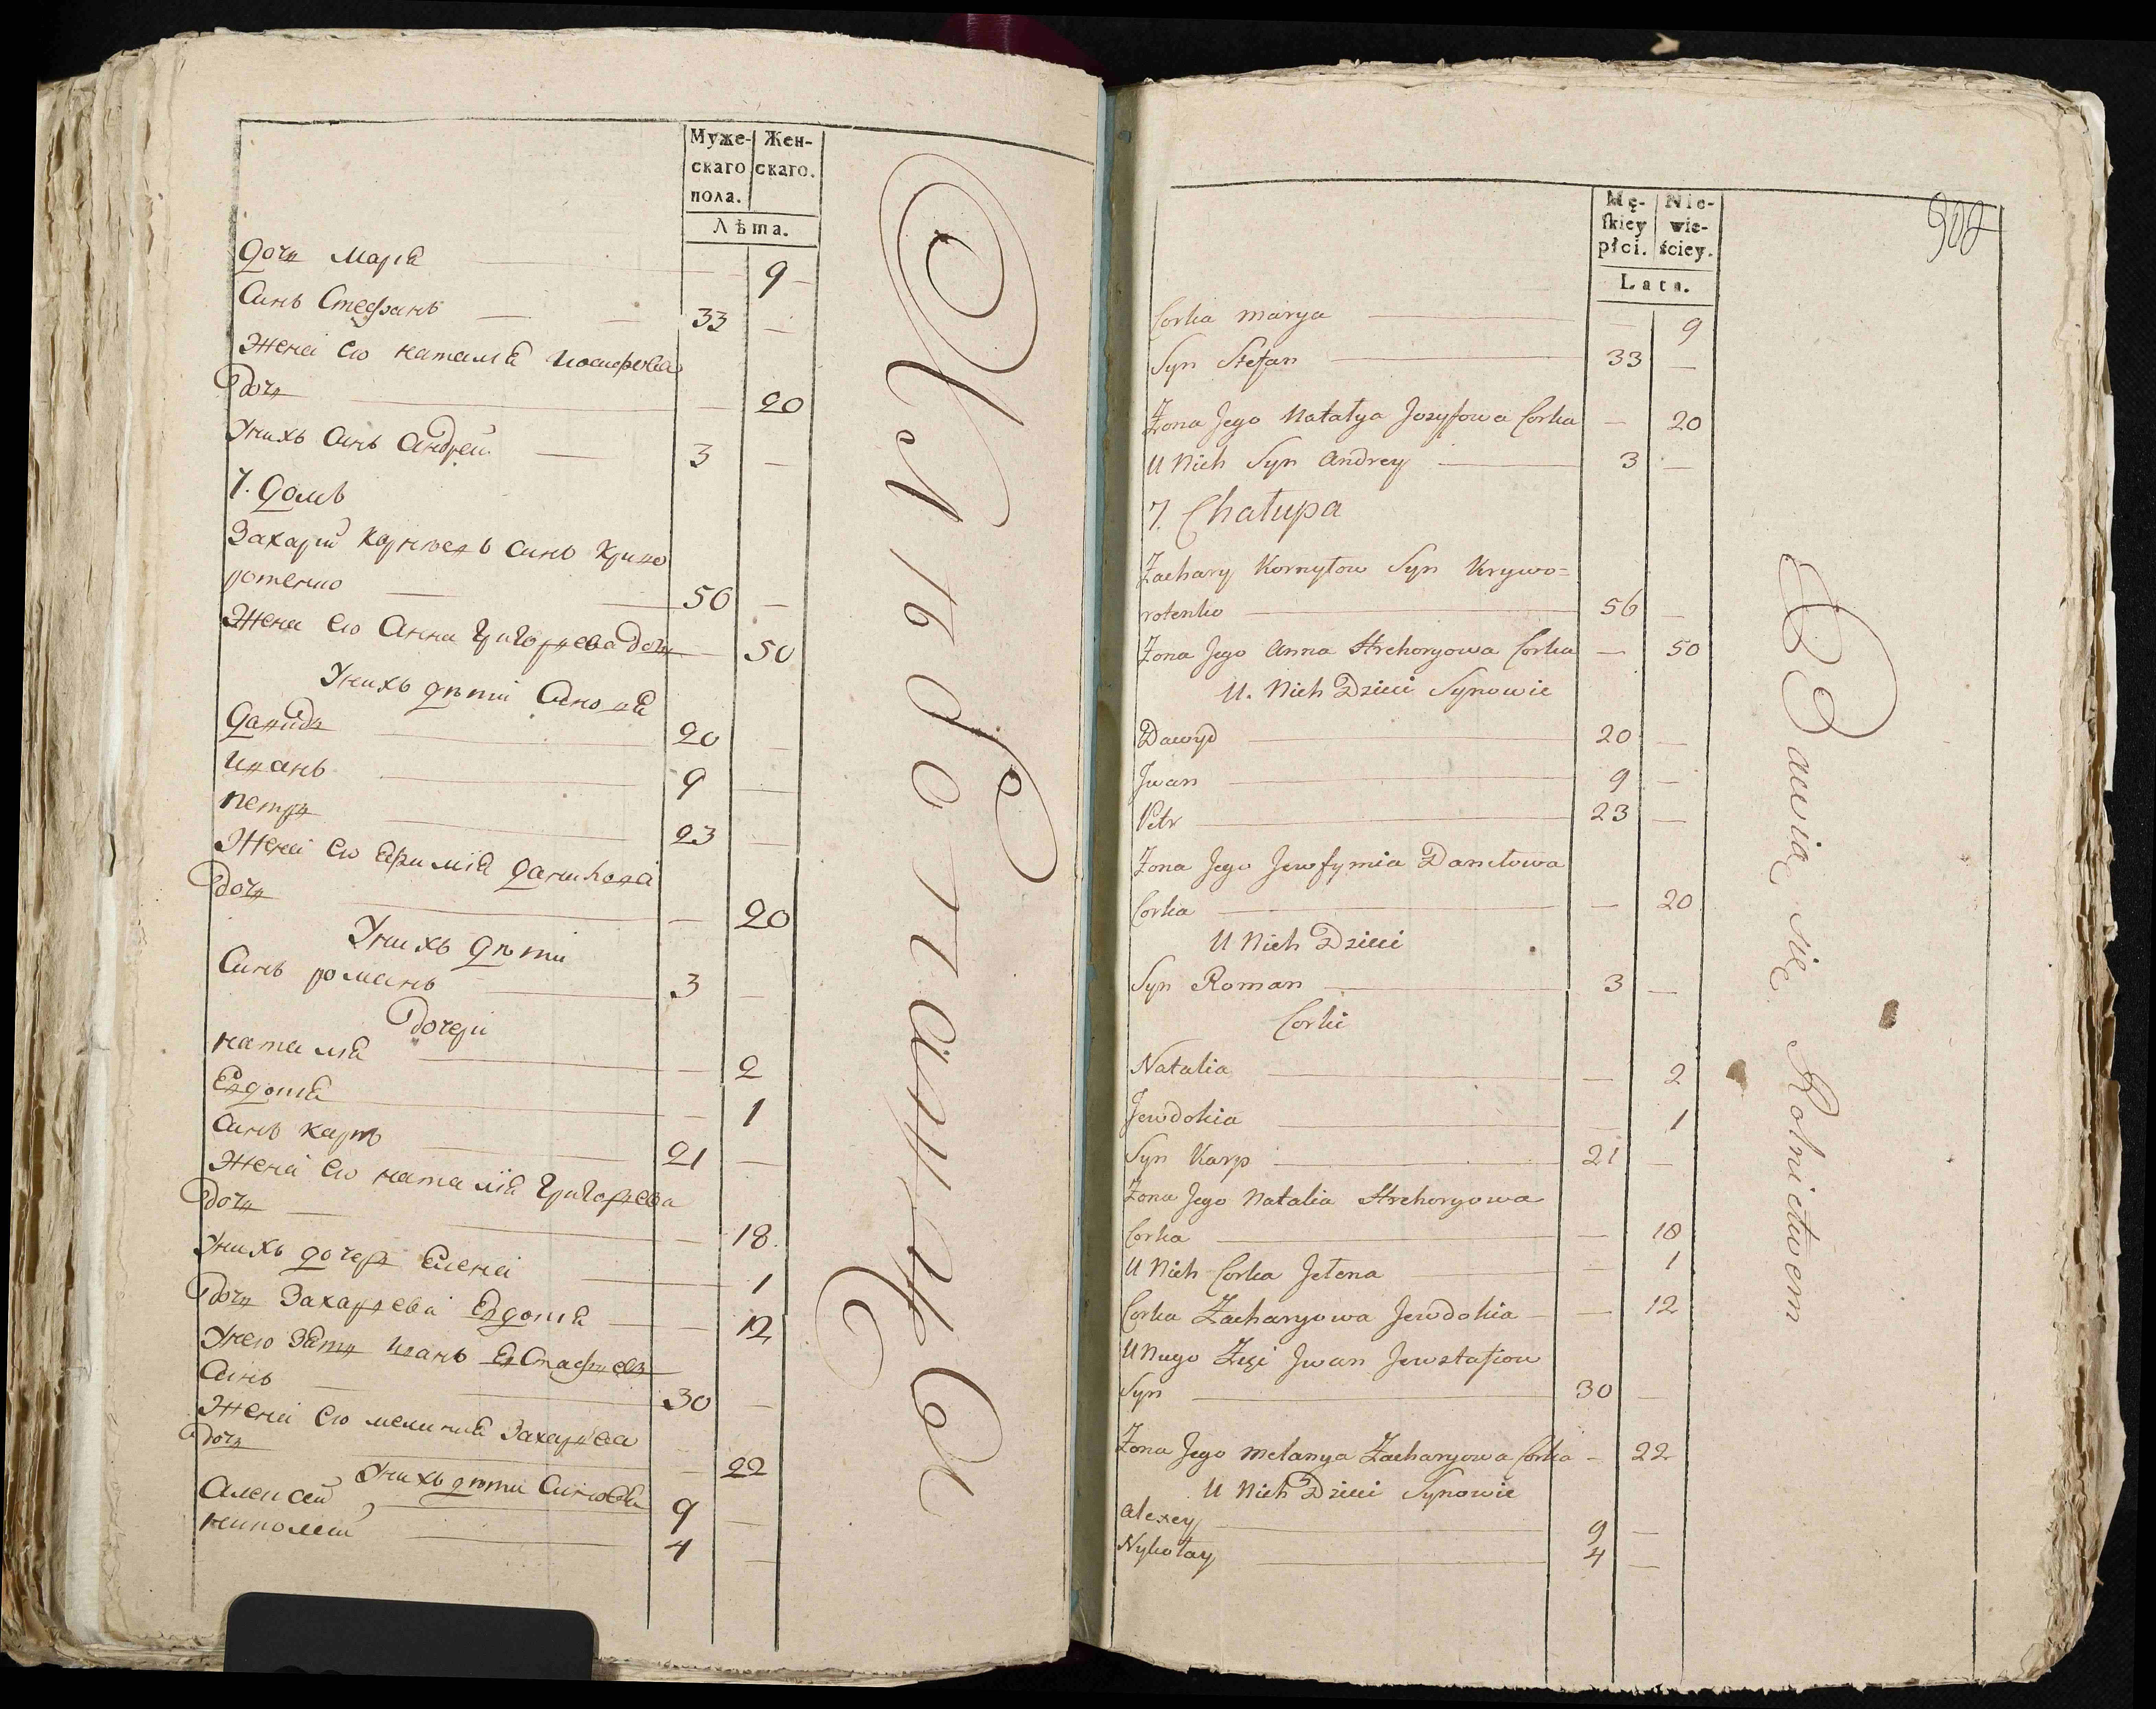 Муже-
скаго
пола.
Жен-
скаго.
Лѣта.
Дочь Марія 9
Синъ Стефанъ 33
Жена его Наталія Иосифова
дочь 20
У нихъ Синъ Андрей 3
7. Домъ
Захарій Корниловъ Синъ Криво
ротенко 56
Жена его Анна Григорьева дочь 50
У нихъ дѣти Синовя
Давидъ 20
Иванъ 9
Петръ 23
Жена его Ефимія Данилова
дочь 20
У нихъ дѣти
Синъ Романъ 3
дочери
Наталія 2
Евдокія 1
Синъ Карпъ 21
Жена его Наталія Григорьева
дочь 18
У нихъ дочерь Елена 1
дочь Захарьева Евдокія 12
У него Зять Иванъ Евстафьевъ
Синъ 30
Жена его Меланія Захарьева
дочь 22
У нихъ дѣти Синовя
Алексей 9
Николай 4
Mę-
skiey
płci.
Nie-
wie-
ściey.
Lata.
Corka Marya 9
Syn Stefan 33
Żona Jego Natalya Jozyfowa Corka 20
U Nich Syn Andrey 3
7. Chałupa
Zachary Kornyłow Syn Krywo=
rotenko 56
Żona Jego Anna Hrehoryowa Corka 50
U. Nich Dzieci Synowie
Dawyd 20
Jwan 9
Petr 23
Żona Jego Jewfymia Daniłowa
Corka 20
U Nich Dzieci
Syn Roman 3
Corki
Natalia 2
Jewdokia 1
Syn Karp 21
Żona Jego Natalia Hrehoryowa
Corka 18
U Nich Corka Jełena 1
Corka Zacharyowa Jewdokia 12
U Niego Zięć Jwan Jewstafiow
Syn 30
Żona Jego Melanya Zacharyowa Corka 22
U Nich Dzieci Synowie
Alexey 9
Nykołay 4
Bawią się Rolnictwem